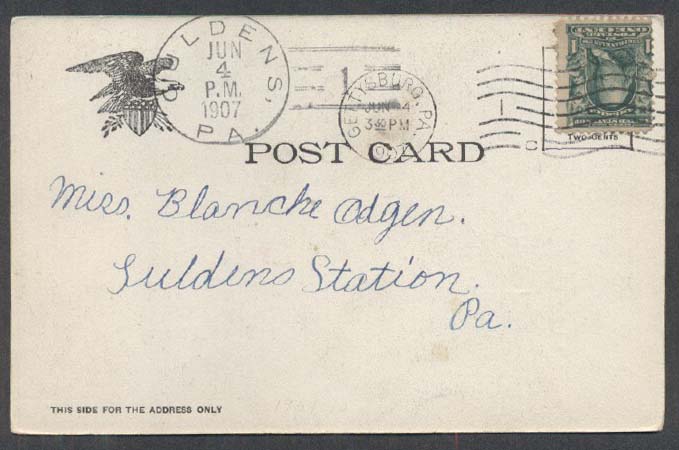 GULDENS, PA.
JUN
4
P.M.
1907
1
GETTYSBURG, PA.
JUN 4
3 30 PM
1907
1
C
TWO-CENTS
POST CARD
Miss. Blanche Odgen.
Guldens Station.
Pa.
THIS SIDE FOR THE ADDRESS ONLY